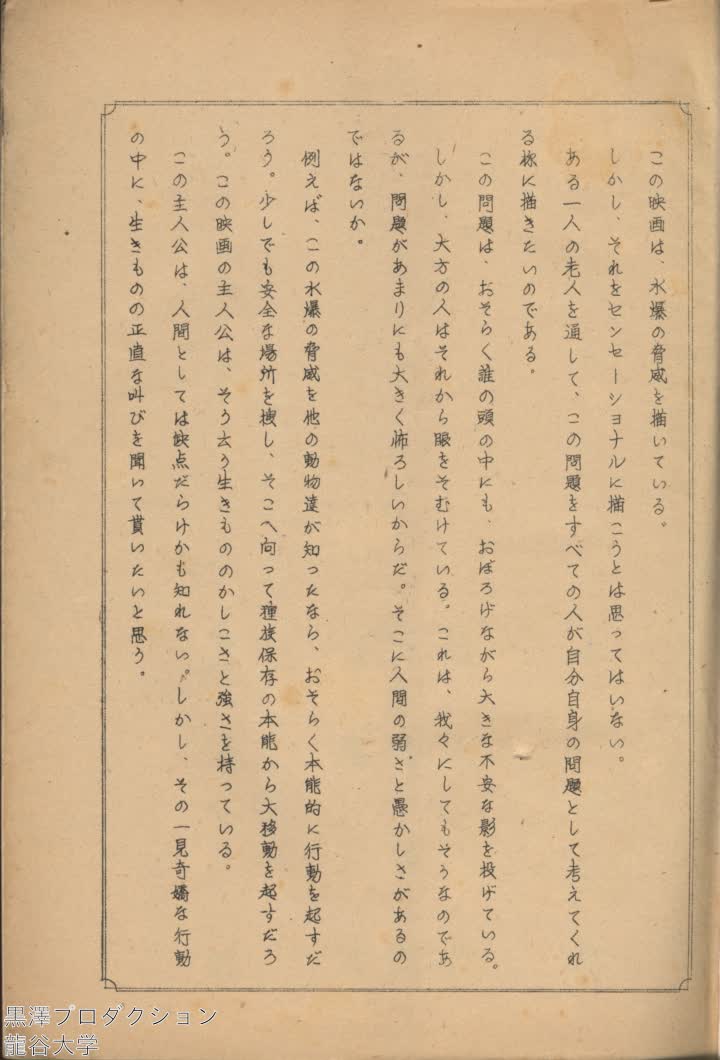 この映画は、水爆の脅威を描いている。
しかし、それをセンセーショナルに描こうとは思ってはいない。
ある一人の老人を通して、この問題をすべての人が自分自身の問題として考えてくれ
る様に描きたいのである。
この問題は、おそらく誰の頭の中にも、おぼろげながら大きな不安な影を投げている。
しかし、大方の人はそれから眼をそむけている。これは、我々にしてもそうなのであ
るが、問題があまりにも大きく怖ろしいからだ。そこに人間の弱さと愚かしさがあるの
ではないか。
例えば、この水爆の脅威を他の動物達が知ったなら、おそらく本能的に行動を起すだ
ろう。少しでも安全な場所を捜し、そこへ向って種族保存の本能から大移動を起すだろ
う。この映画の主人公は、そう云う生きもののかしこさと強さを持っている。
この主人公は、人間としては缺点だらけかも知れない。しかし、その一見奇矯な行動
の中に、生きものの正直な叫びを聞いて貰いたいと思う。
黒澤プロダクション
龍谷大学